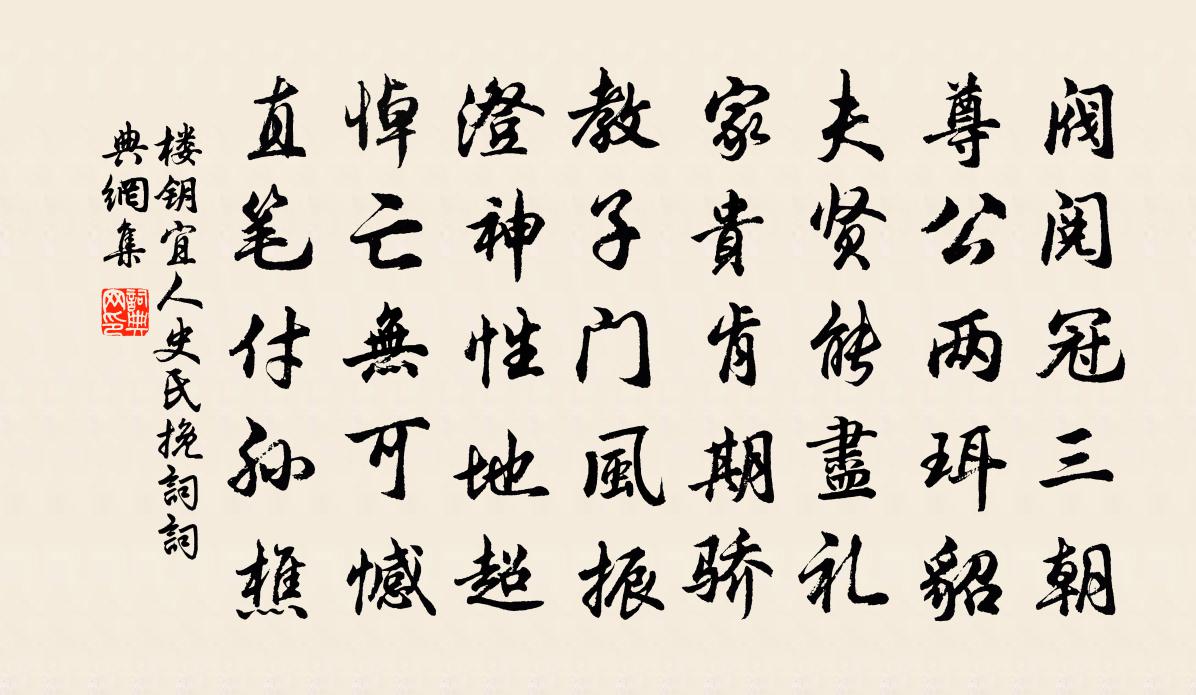 阀阅冠三朝
尊公两珥貂
夫贤能盡礼
家貴肯期骄
教子门風振
澄神性地超
悼亡無可憾
直笔付孙樵
楼钥宜人史民挽詞詞
典網集
詞典
网印